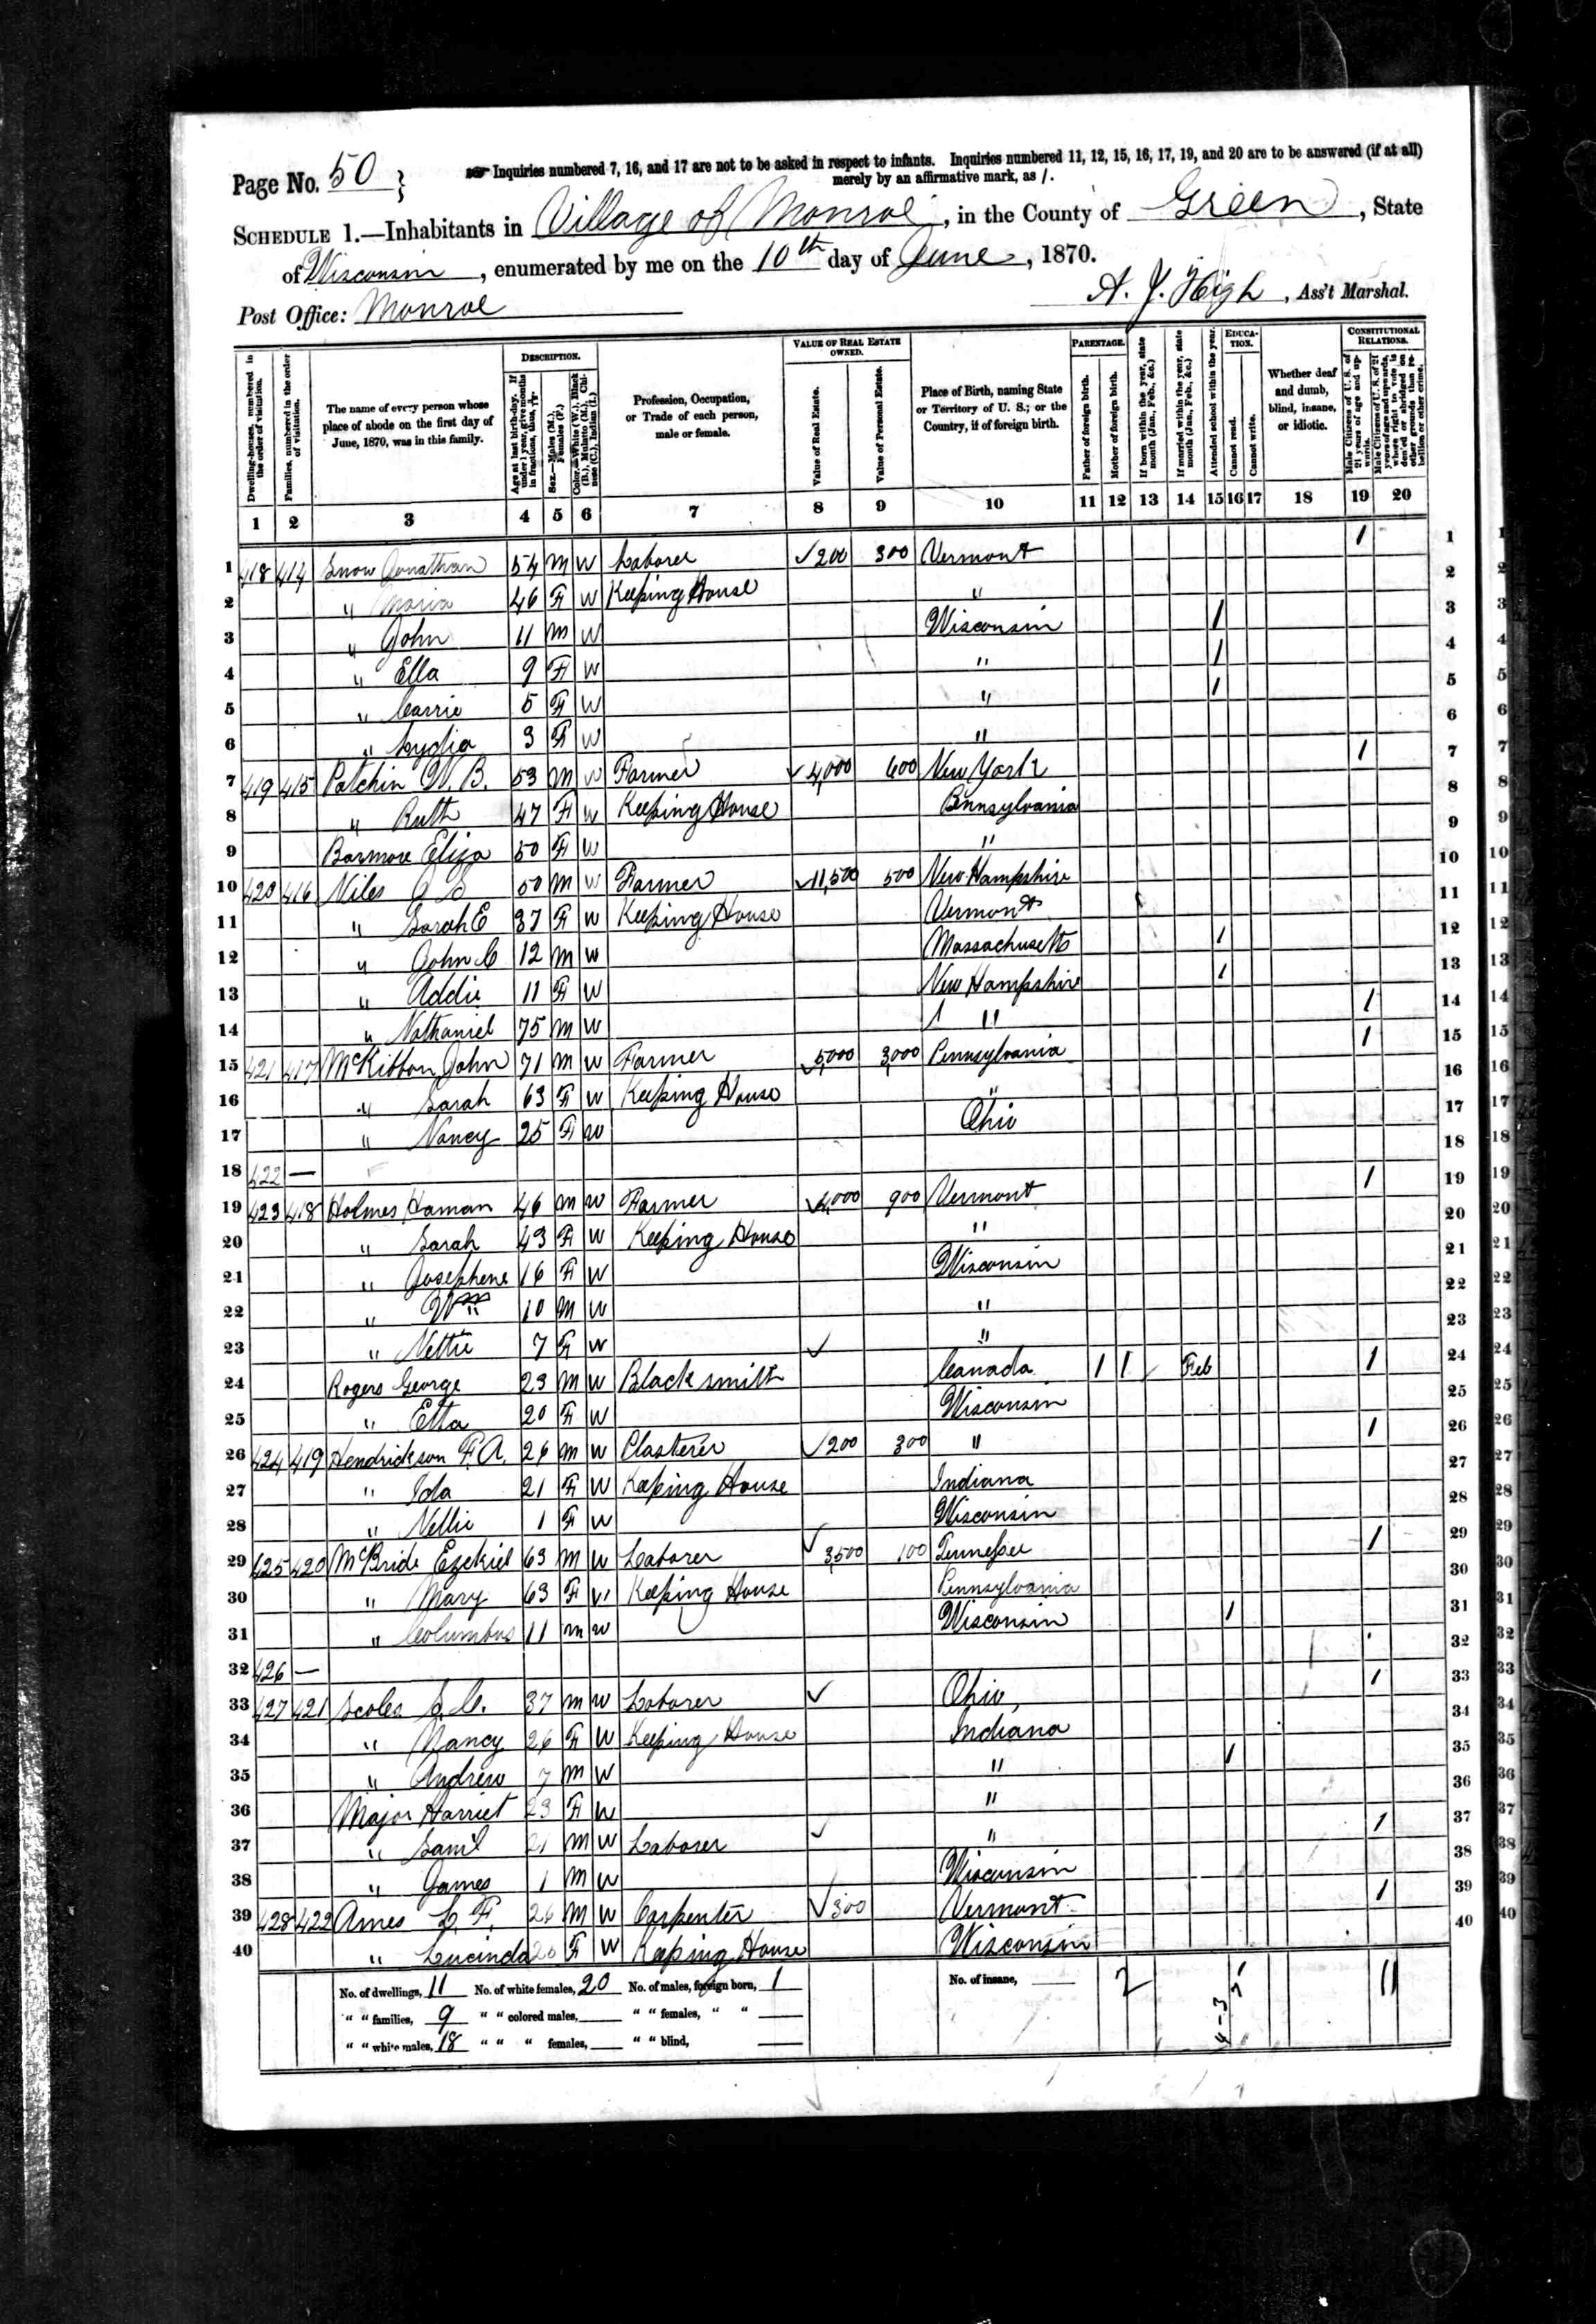 Page No. 50 } ☞ Inquiries numbered 7, 16, and 17 are not to be asked in respect to infants. Inquiries numbered 11, 12, 15, 16, 17, 19, and 20 are to be answered (if at all)
merely by an affirmative mark, as /.
SCHEDULE 1.—Inhabitants in Village of Monroe, in the County of Green, State
of Wisconsin, enumerated by me on the 10th day of June, 1870.
Post Office: Monroe
A. J. High, Ass't Marshal.
Dwelling-houses, numbered in the order of visitation.
Families, numbered in the order of visitation.
The name of every person whose place of abode on the first day of June, 1870, was in this family.
DESCRIPTION.
Age at last birth-day. If under 1 year, give months in fractions, thus, 3/12.
Sex.—Males (M.), Females (F.)
Color.—White (W.), Black (B.), Mulatto (M.), Chinese (C.), Indian (I.)
Profession, Occupation, or Trade of each person, male or female.
VALUE OF REAL ESTATE OWNED.
Value of Real Estate.
Value of Personal Estate.
Place of Birth, naming State or Territory of U. S.; or the Country, if of foreign birth.
PARENTAGE.
Father of foreign birth.
Mother of foreign birth.
If born within the year, state month (Jan., Feb., &c.)
If married within the year, state month (Jan., Feb., &c.)
Attended school within the year.
EDUCATION.
Cannot read.
Cannot write.
Whether deaf and dumb, blind, insane, or idiotic.
CONSTITUTIONAL RELATIONS.
Male Citizens of U. S. of 21 years of age and upwards.
Male Citizens of U. S. of 21 years of age and upwards, whose right to vote is denied or abridged on other grounds than rebellion or other crime.
1 2 3 4 5 6 7 8 9 10 11 12 13 14 15 16 17 18 19 20
1 418 414 Snow Jonathan 54 M W Laborer ✓ 200 300 Vermont 1 1
2 " Maria 46 F W Keeping House " 2
3 " John 11 M W Wisconsin 1 3
4 " Ella 9 F W " 1 4
5 " Carrie 5 F W " 1 5
6 " Lydia 3 F W " 6
7 419 415 Patchin W. B. 53 M W Farmer ✓ 4,000 600 New York 1 7
8 " Ruth 47 F W Keeping House Pennsylvania 8
9 Barmore Eliza 50 F W " 9
10 420 416 Niles 50 M W Farmer ✓ 11,500 500 New Hampshire 10
11 " Sarah E 37 F W Keeping House Vermont 11
12 " John C 12 M W Massachusetts 1 12
13 " Addie 11 F W New Hampshire 1 13
14 " Nathaniel 75 M W " 1 14
15 421 417 McKibbon John 71 M W Farmer ✓ 5,000 3,000 Pennsylvania 1 15
16 " Sarah 63 F W Keeping House " 16
17 " Nancy 25 F W Ohio 17
18 422 — 18
19 423 418 Holmes Haman 46 M W Farmer ✓ 4,000 900 Vermont 1 19
20 " Sarah 43 F W Keeping House " 20
21 " Josephene 16 F W Wisconsin 21
22 " Wm 10 M W " 22
23 " Nettie 7 F W ✓ " 23
24 Rogers George 23 M W Blacksmith Canada 1 1 Feb 1 24
25 " Etta 20 F W Wisconsin 25
26 424 419 Hendrickson F. A. 26 M W Plasterer ✓ 200 300 " 1 26
27 " Ida 21 F W Keeping House Indiana 27
28 " Nellie 1 F W Wisconsin 28
29 425 420 McBride Ezekiel 63 M W Laborer ✓ 3,500 100 Tennessee 1 29
30 " Mary 63 F W Keeping House Pennsylvania 30
31 " Columbus 11 M W Wisconsin 1 31
32 426 — 32
33 427 421 Scoles 37 M W Laborer ✓ Ohio 1 33
34 " Nancy 26 F W Keeping House Indiana 34
35 " Andrew 7 M W " 1 35
36 Major Harriet 23 F W " 36
37 " Saml 21 M W Laborer ✓ " 1 37
38 " James 1 M W Wisconsin 38
39 428 422 Ames L. F. 26 M W Carpenter ✓ 300 Vermont 1 39
40 " Lucinda 20 F W Keeping House Wisconsin 40
No. of dwellings, 11 No. of white females, 20 No. of males, foreign born, 1 No. of insane, 2 11
" " families, 9 " " colored males, " " females, " "
" " white males, 18 " " " females, " " blind,